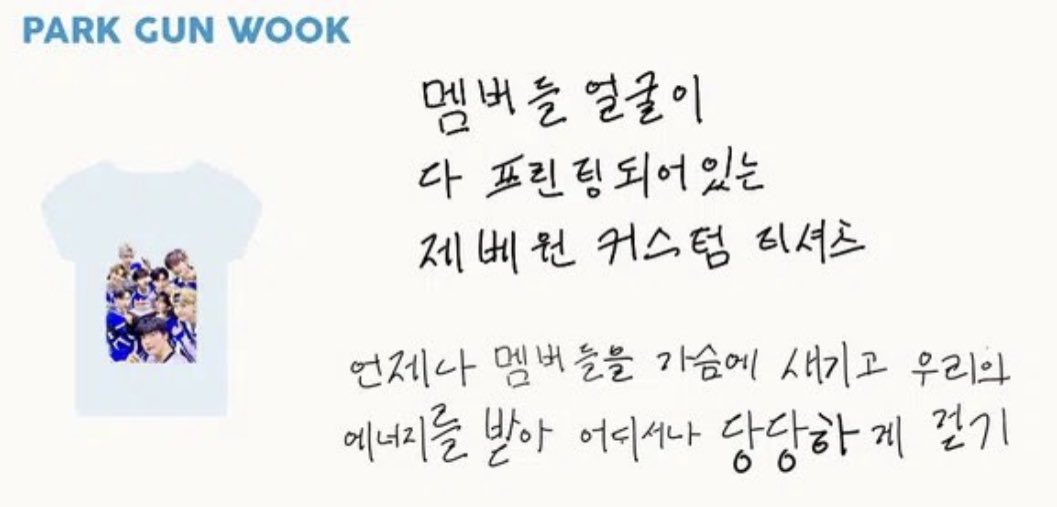 PARK GUN WOOK
멤버들 얼굴이
다 프린팅되어있는
제베원 커스텀 티셔츠
언제나 멤버들을 가슴에 새기고 우리의
에너지를 받아 어디서나 당당하게 걷기